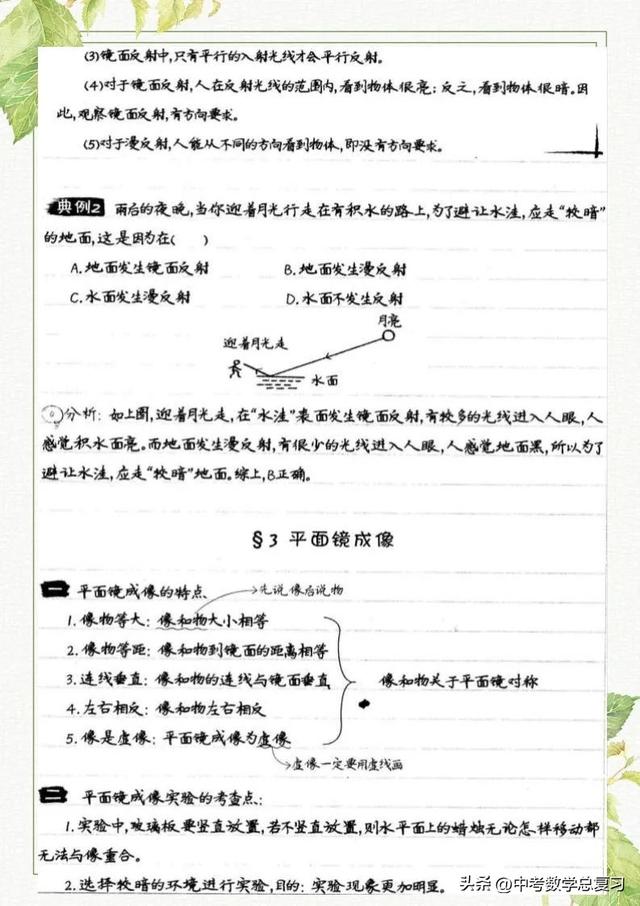 (3)镜面反射中,只有平行的入射光线才会平行反射。
(4)对于镜面反射,人在反射光线的范围内,看到物体很亮;反之,看到物体很暗。因
此,观察镜面反射,有方向要求。
(5)对于漫反射,人能从不同的方向看到物体,即没有方向要求。
典例2 雨后的夜晚,当你迎着月光行走在有积水的路上,为了避让水洼,应走“较暗”
的地面,这是因为在( )
A.地面发生镜面反射 B.地面发生漫反射
C.水面发生漫反射 D.水面不发生反射
月亮
迎着月光走
水面
分析:如上图,迎着月光走,在“水洼”表面发生镜面反射,有较多的光线进入人眼,人
感觉积水面亮。而地面发生漫反射,有很少的光线进入人眼,人感觉地面黑,所以为了
避让水洼,应走“较暗”地面。综上,B正确。
§3 平面镜成像
一 平面镜成像的特点、
先说像后说物
1.像物等大:像和物大小相等
2.像物等距:像和物到镜面的距离相等
3.连线垂直:像和物的连线与镜面垂直
像和物关于平面镜对称
4.左右相反:像和物左右相反
5.像是虚像:平面镜成像为虚像
虚像一定要用虚线画
二 平面镜成像实验的考查点:
1.实验中,玻璃板要竖直放置,若不竖直放置,则水平面上的蜡烛无论怎样移动都
无法与像重合。
2.选择较暗的环境进行实验,目的:实验现象更加明显。
头条 @中考数学总复习